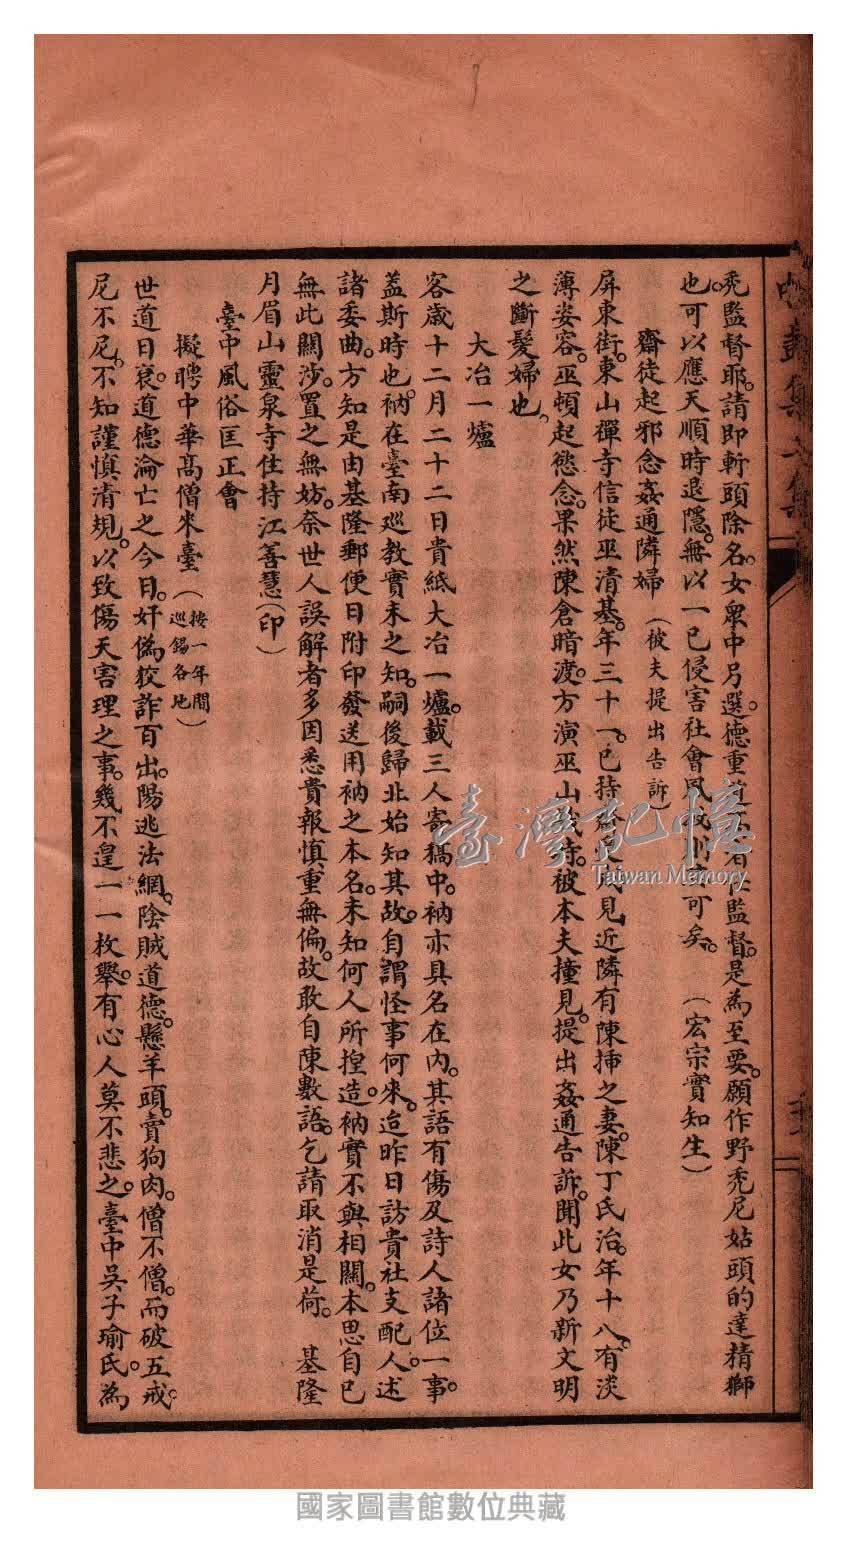 禿監督耶。請即斬頭除名。女眾中另選。德重道
監督。是為至要。願作野禿尼姑頭的達精獅
也。可以應天順時退隱。無以一己侵害社會風
可矣。（宏宗實知生）
齋徒起邪念姦通隣婦（被夫提出告訴）
屏東街。東山禪寺信徒巫清基。年三十一。已持齋
見近隣有陳挿之妻。陳丁氏治。年十八。有淡
薄姿容。巫頓起慾念。果然陳倉暗渡。方演巫山
被本夫撞見。提出姦通告訴。聞此女乃新文明
之斷髮婦也。
大冶一爐
客歲十二月二十二日貴紙大冶一爐。載三人寄稿中。衲亦具名在內。其語有傷及詩人諸位一事。
盖斯時也。衲在臺南巡教實未之知。嗣後歸北始知其故。自謂怪事何來。迨昨日訪貴社支配人。述
諸委曲。方知是由基隆郵便日附印發送用衲之本名。未知何人所揑造。衲實不與相關。本思自己
無此關涉。置之無妨。奈世人誤解者多因悉貴報慎重無偏。故敢自陳數語。乞請取消是荷。 基隆
月眉山靈泉寺住持江善慧（印）
臺中風俗匡正會
擬聘中華高僧來臺（按一年間巡錫各地）
世道日衰。道德淪亡之今日。奸偽狡詐百出。陽逃法網。陰賊道德。懸羊頭。賣狗肉。僧不僧。而破五戒。
尼不尼。不知謹慎清規。以致傷天害理之事。幾不遑一一枚舉。有心人莫不悲之。臺中吳子瑜氏。為
臺灣記憶
Taiwan Memory
國家圖書館數位典藏